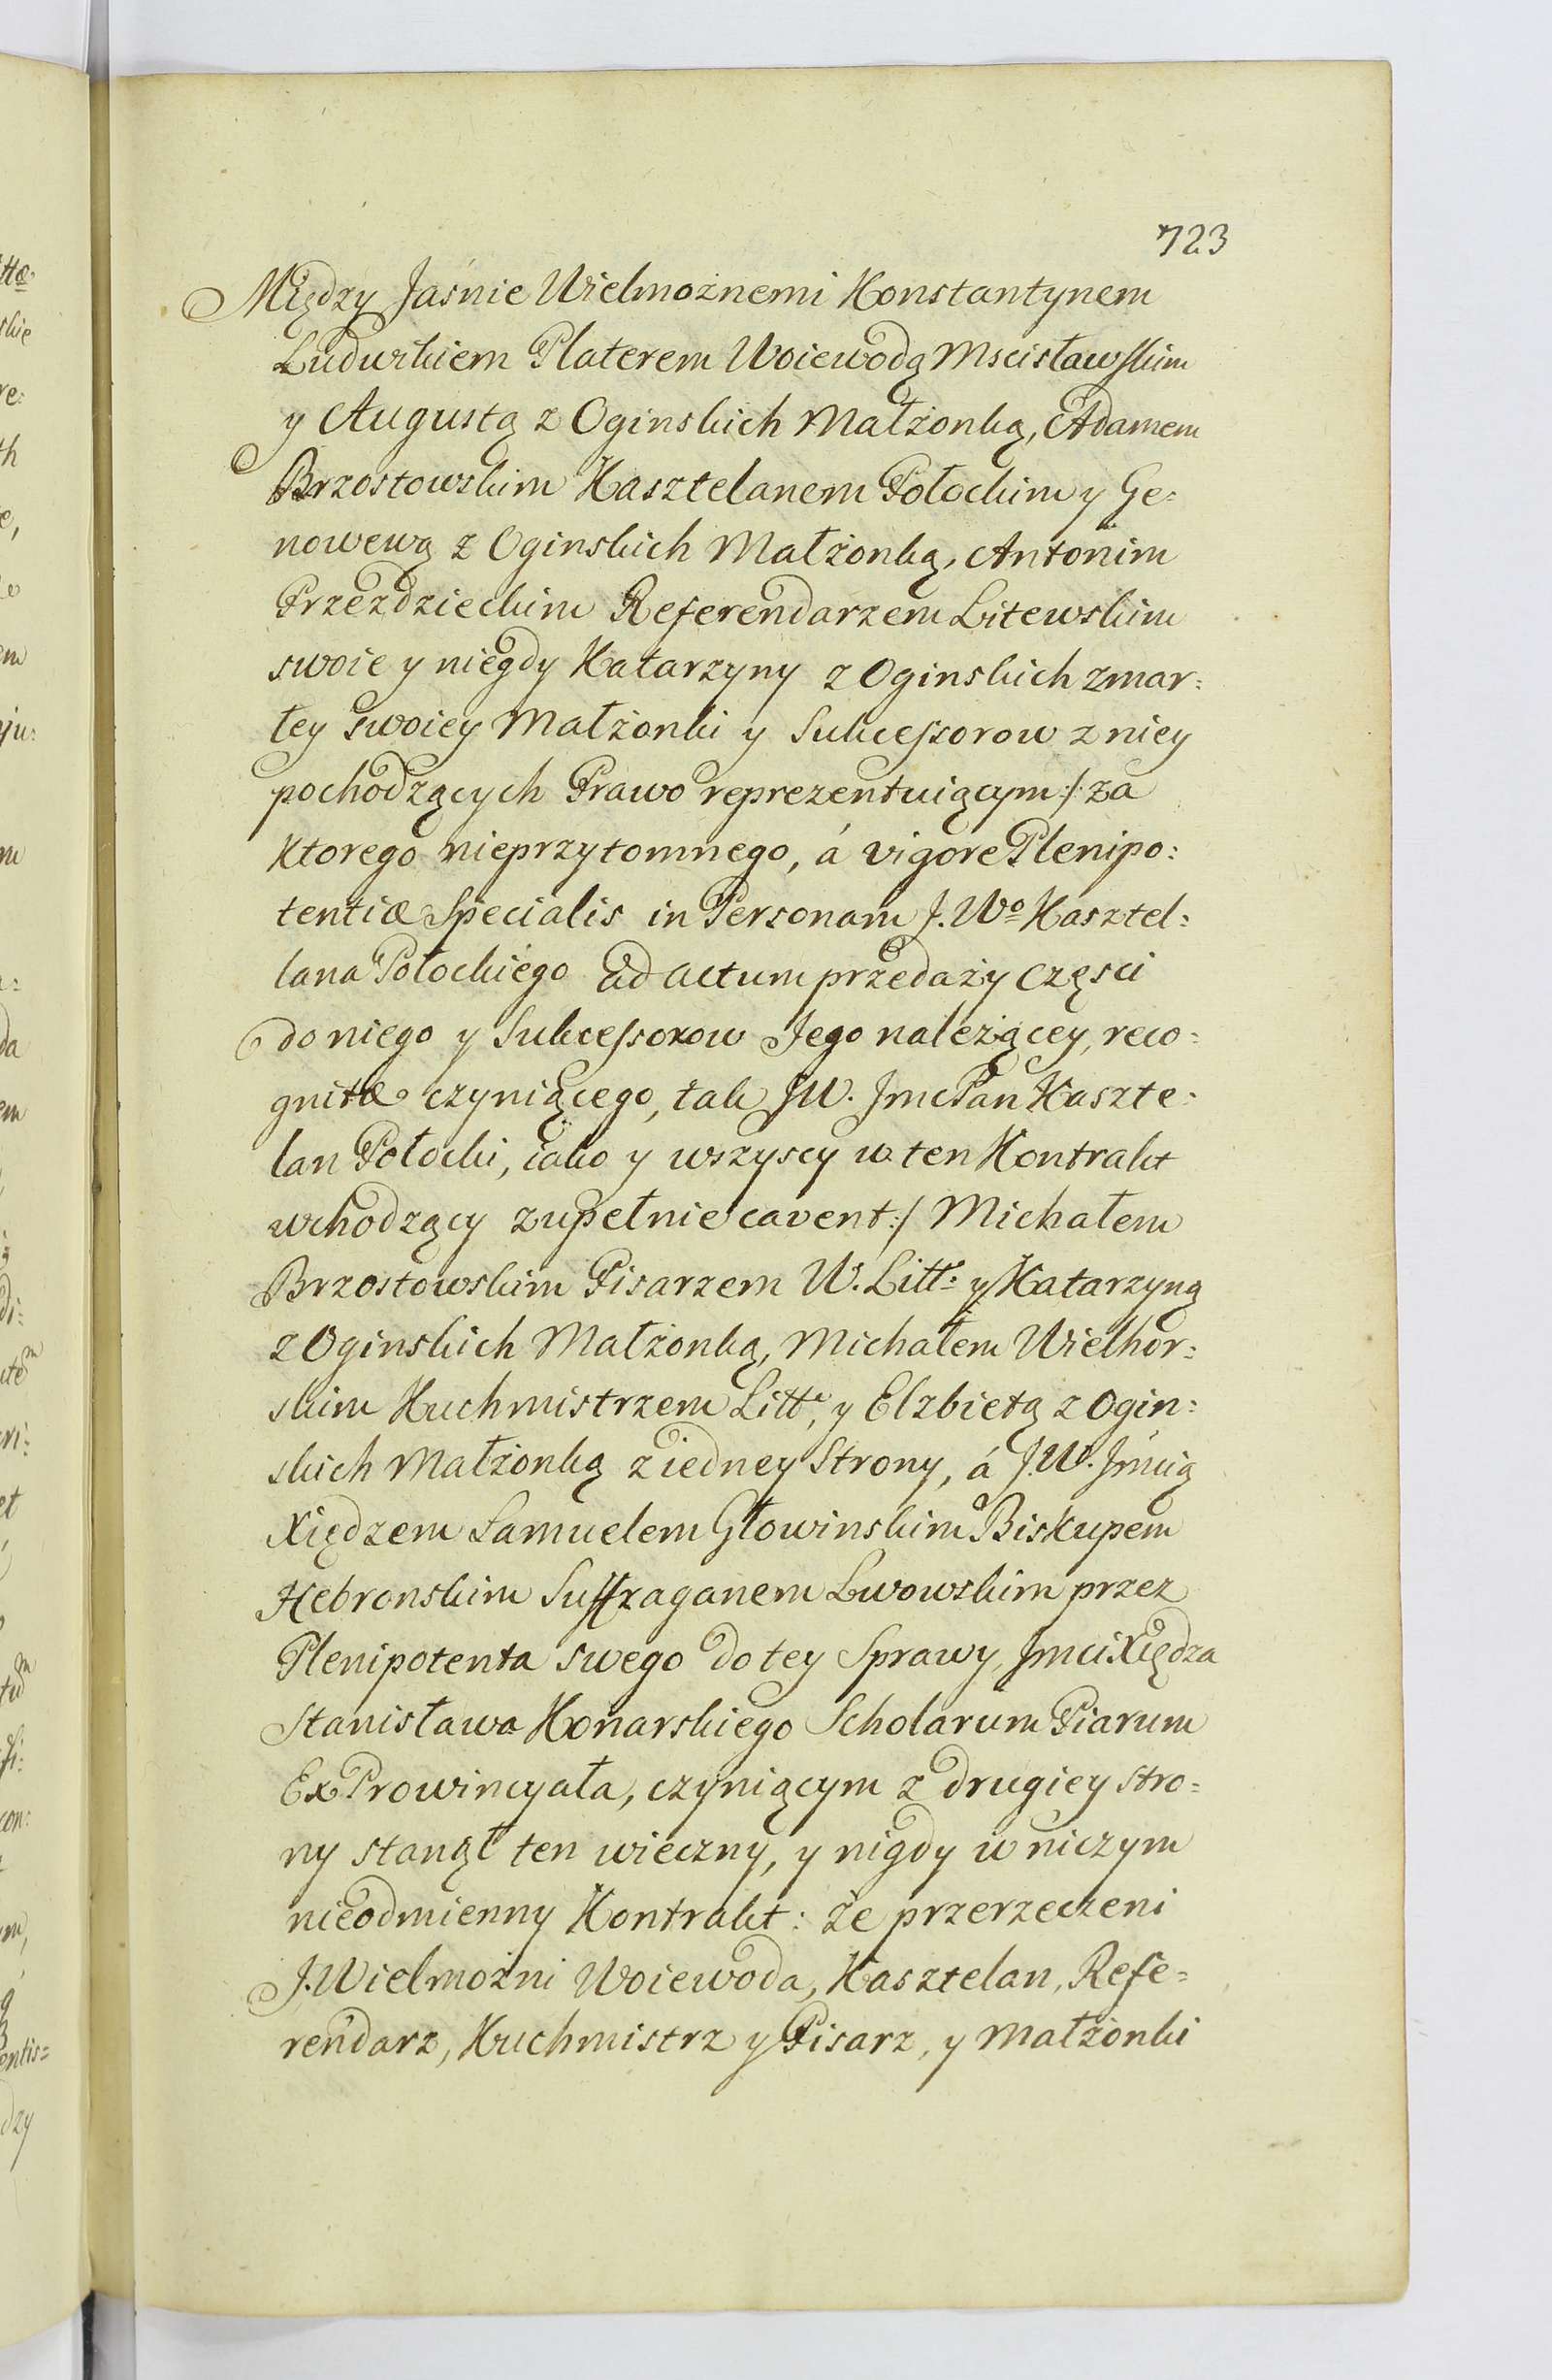 723
Między Jaśnie Wielmożnemi Konstantynem
Ludwikiem Platerem Woiewodą Mscisławskim
y Augustą z Oginskich Małżonką, Adamem
Brzostowskim Kasztelanem Połockim y Ge:
nowewą z Oginskich Małżonką, Antonim
Przezdzieckim Referendarzem Litewskim
swoie y niegdy Katarzyny z Oginskich zmar:
łey swoiey Małżonki y Sukcessorow z niey
pochodzących Prawo reprezentuiącym :/: za
ktorego nieprzytomnego, á vigore Plenipo:
tentiæ Specialis in Personam J. Wo Kasztel:
lana Połockiego ad actum przedaży Częsci
do niego y Sukcessorow Jego należącey, reco:
gnitæ czyniącego, tak JW. Jmc Pan Kaszte:
lan Połocki, iako y wszyscy w ten Kontrakt
wchodzący zupełnie cavent :/ Michałem
Brzostowskim Pisarzem W. Litt: y Katarzyną
z Oginskich Małżonką, Michałem Wielhor:
skim Kuchmistrzem Litt:, y Elzbietą z Ogin:
skich Małżonką z iedney Strony, á J.W. Jmcią
Xiędzem Samuelem Głowinskim Biskupem
Hebronskim Suffraganem Lwowskim przez
Plenipotenta swego do tey Sprawy, Jmci Xiędza
Stanisława Konarskiego Scholarum Piarum
Ex Prowincyała, czyniącym z drugiey stro:
ny stanął ten wieczny, y nigdy w niczym
nieodmienny Kontrakt: że przerzeczeni
J. Wielmożni Woiewoda, Kasztelan, Refe:
rendarz, Kuchmistrz y Pisarz, y Małżonki